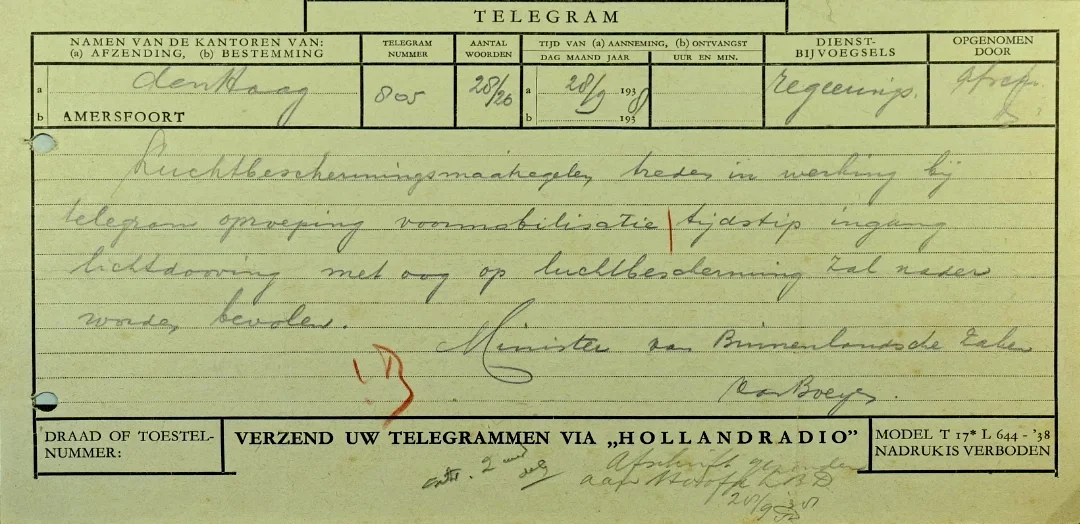 TELEGRAM
NAMEN VAN DE KANTOREN VAN:
(a) AFZENDING, (b) BESTEMMING
TELEGRAM
NUMMER
AANTAL
WOORDEN
TIJD VAN (a) AANNEMING, (b) ONTVANGST
DAG MAAND JAAR
UUR EN MIN.
DIENST-
BIJVOEGSELS
OPGENOMEN
DOOR
a den Haag 805 28/26 a 28/9 1938 regeerings.
b AMERSFOORT b 193
Luchtbeschermingsmaatregelen treden in werking bij
telegram oproeping voormobilisatie | tijdstip ingang
lichtdooving met oog op luchtbescherming zal nader
worden bevolen.
Minister van Binnenlandsche Zaken
van Boeyen.
DRAAD OF TOESTEL-
NUMMER:
VERZEND UW TELEGRAMMEN VIA „HOLLANDRADIO”
MODEL T 17* L 644 - '38
NADRUK IS VERBODEN
2
Afschrift gezonden
aan Hoofd L B D
28/9 '38